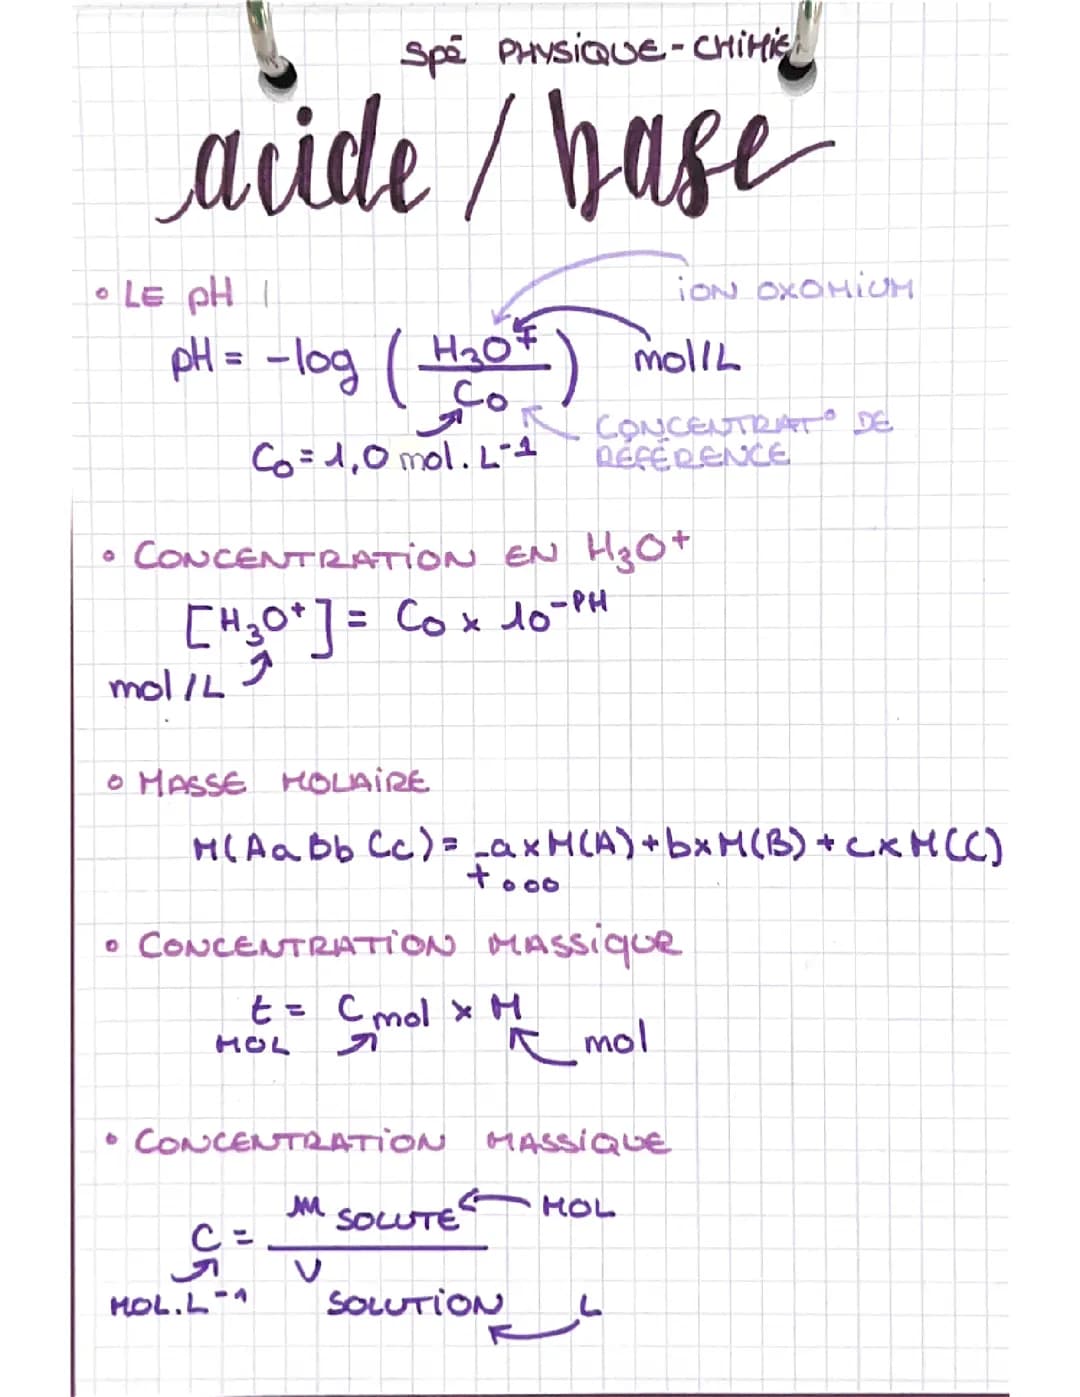 Spé PHYSiQUE-CHiMiE
acide / base
• LE pH
iON OXOMiUM
pH = -log ( H3O+ / Co ) mol/L
CONCENTRAT° DE
RÉFÉRENCE
Co = 1,0 mol.L-1
• CONCENTRATiON EN H3O+
[H3O+] = Co x 10-PH
mol/L
• MASSE MOLAiRE
M(Aa Bb Cc) = a x M(A) + b x M(B) + c x M(C)
+ ...
• CONCENTRATiON MASSiQUE
t = C mol x M
MOL mol
• CONCENTRATiON MASSiQUE
C = m SOLUTE MOL
V SOLUTiON L
MOL.L-1